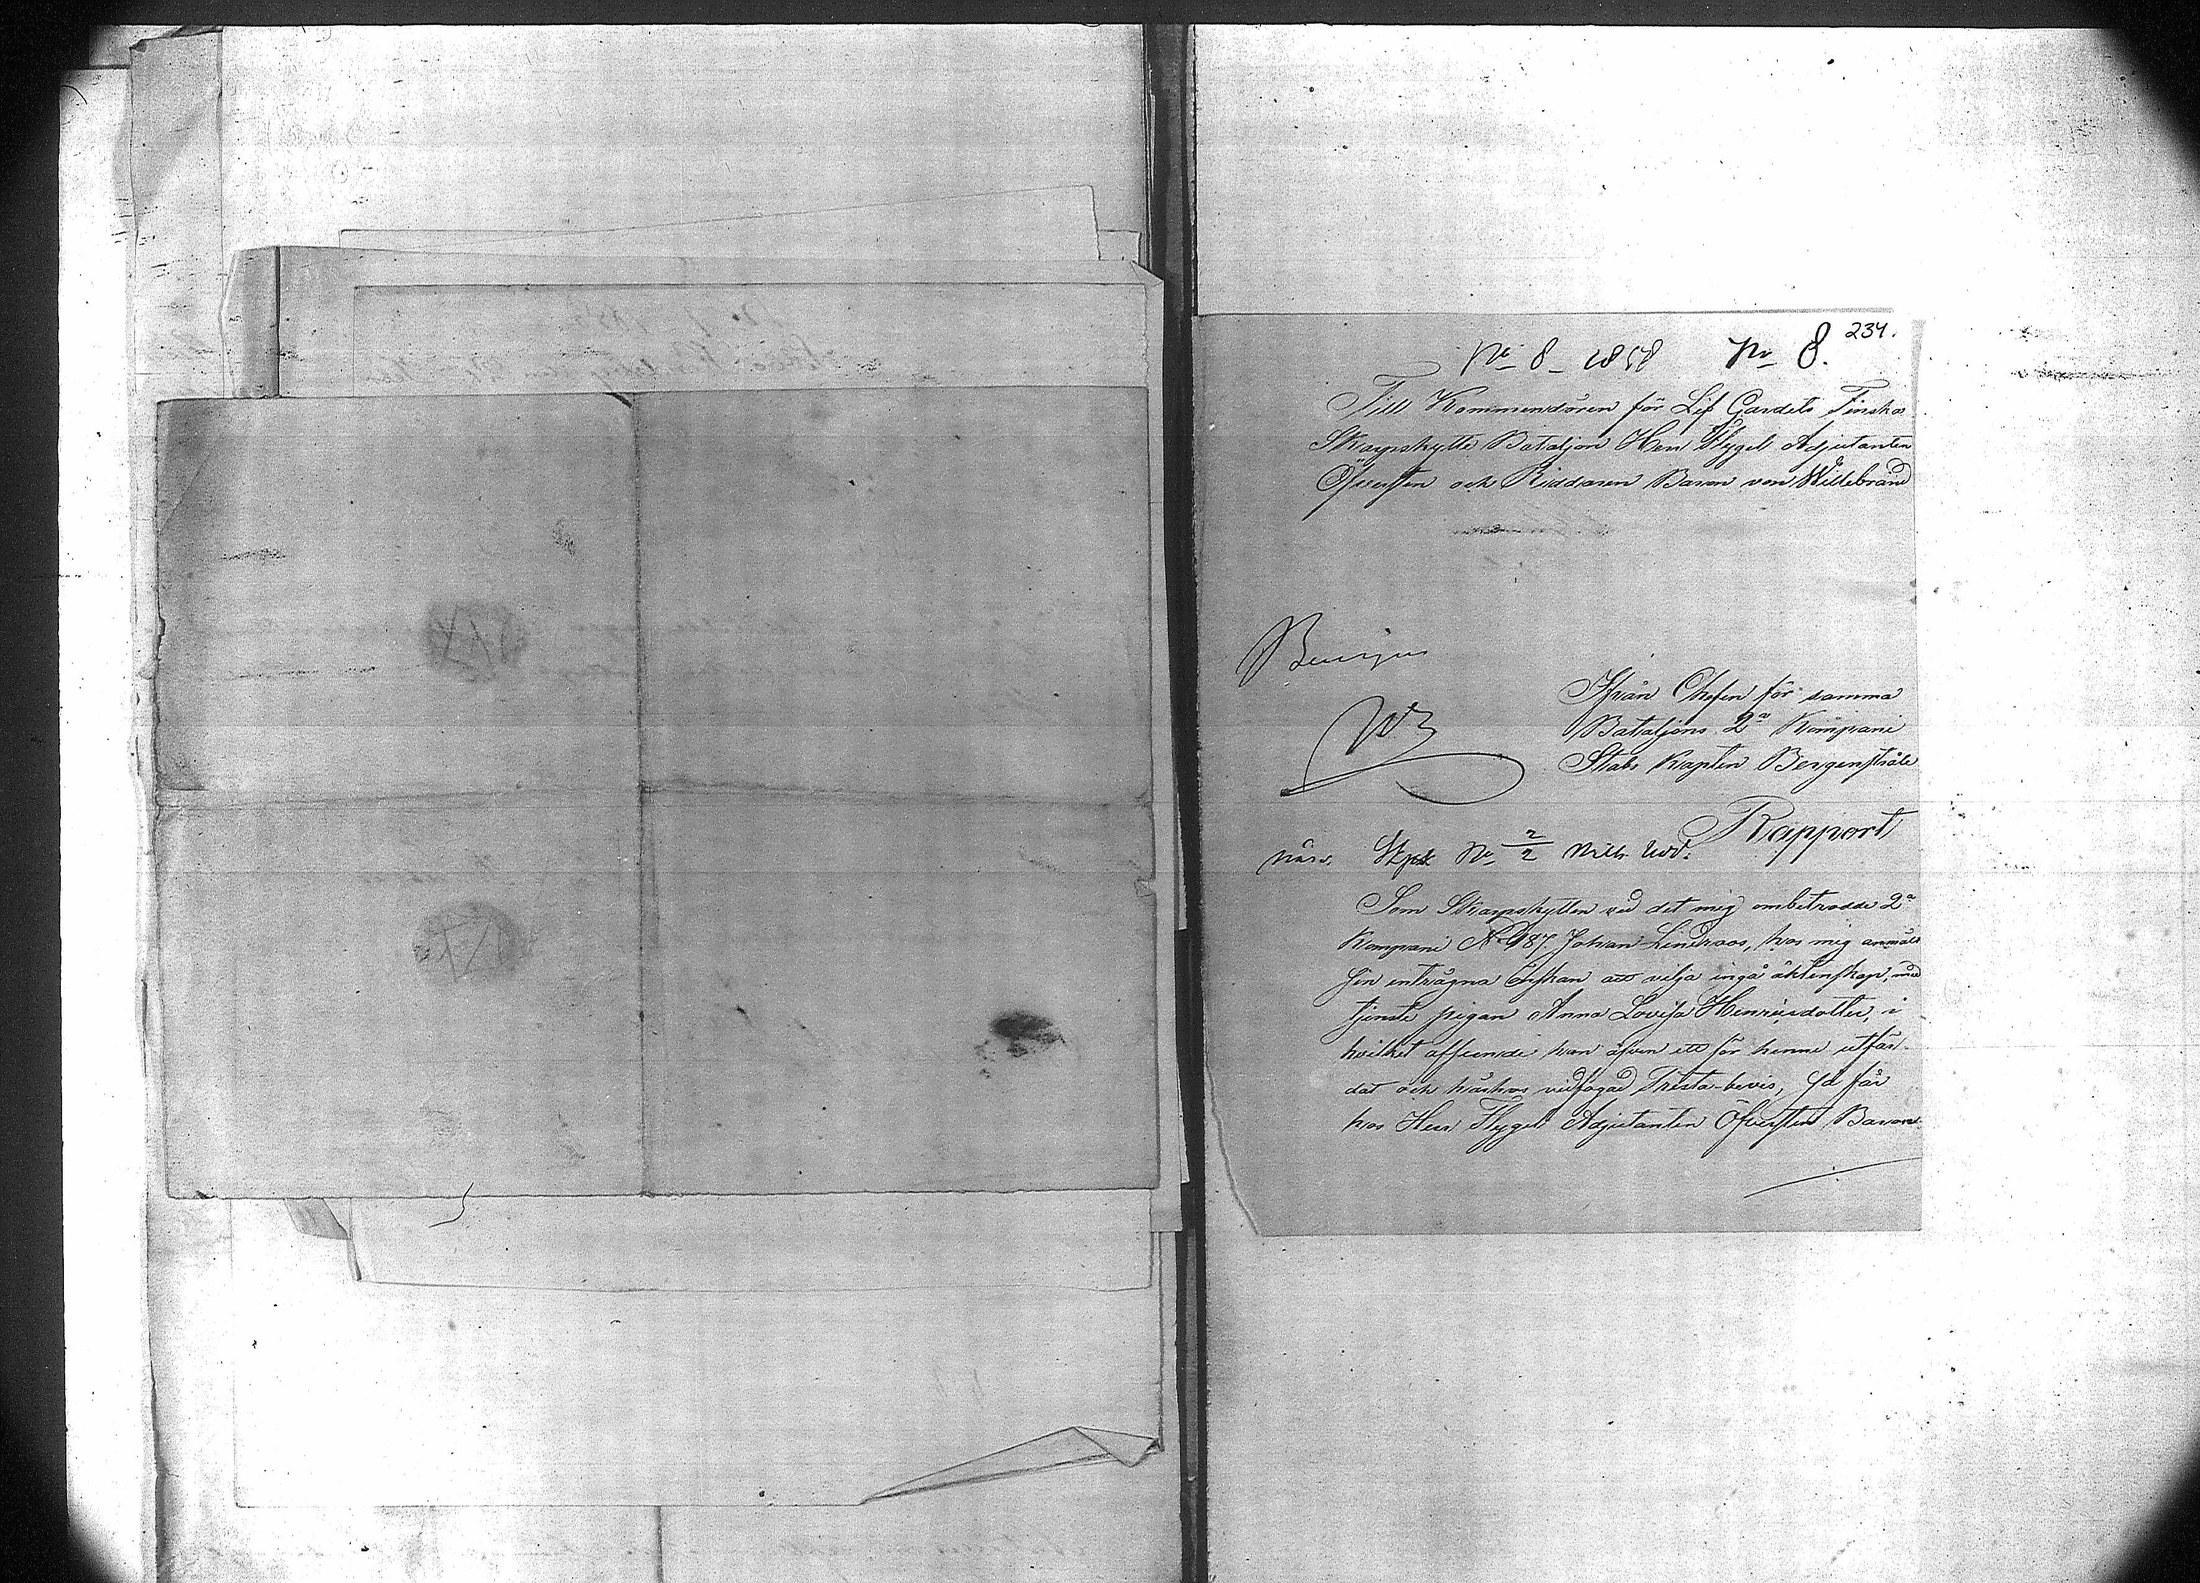 234.
No 8 - 1858 No 8.
Till Kommendören för Lif Gardets Finska
Skarpskytte Bataljon Herr Flygel Adjutanten
Öfversten och Riddaren Baron von Willebrand
Beviljas
Ifrån Chefen för samma
Bataljons 2a Kompani
Stabs Kapten Bergenstråle
Rapport
No 2/2
Som Skarpskytten vid det mig ombetrodde 2a
Kompani No 187. Johan Lindroos, hos mig anmält
sin enträgna önskan att vilja ingå äktenskap, med
tjenste pigan Anna Lovisa Henricsdotter, i
hvilket afseende han äfven ett för henne utfär-
dat och härhos vidfogad Frista-bevis, så får
hos Herr Flygel Adjutanten Öfversten Baron